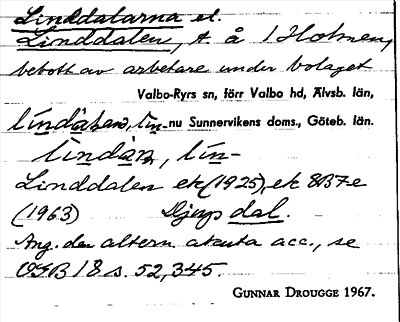 Linddalarna el.
Linddalen, t. å 1 Holmen,
bebott av arbetare under bolaget
Valbo-Ryrs sn, förr Valbo hd, Älvsb. län,
nu Sunnervikens doms., Göteb. län.
lìndàn, lìn-
Linddalen ek (1925), ek 8B7e
(1963) Djup dal.
Ang. den altern. akuta acc., se
OGB 18 s. 52, 345.
GUNNAR DROUGGE 1967.